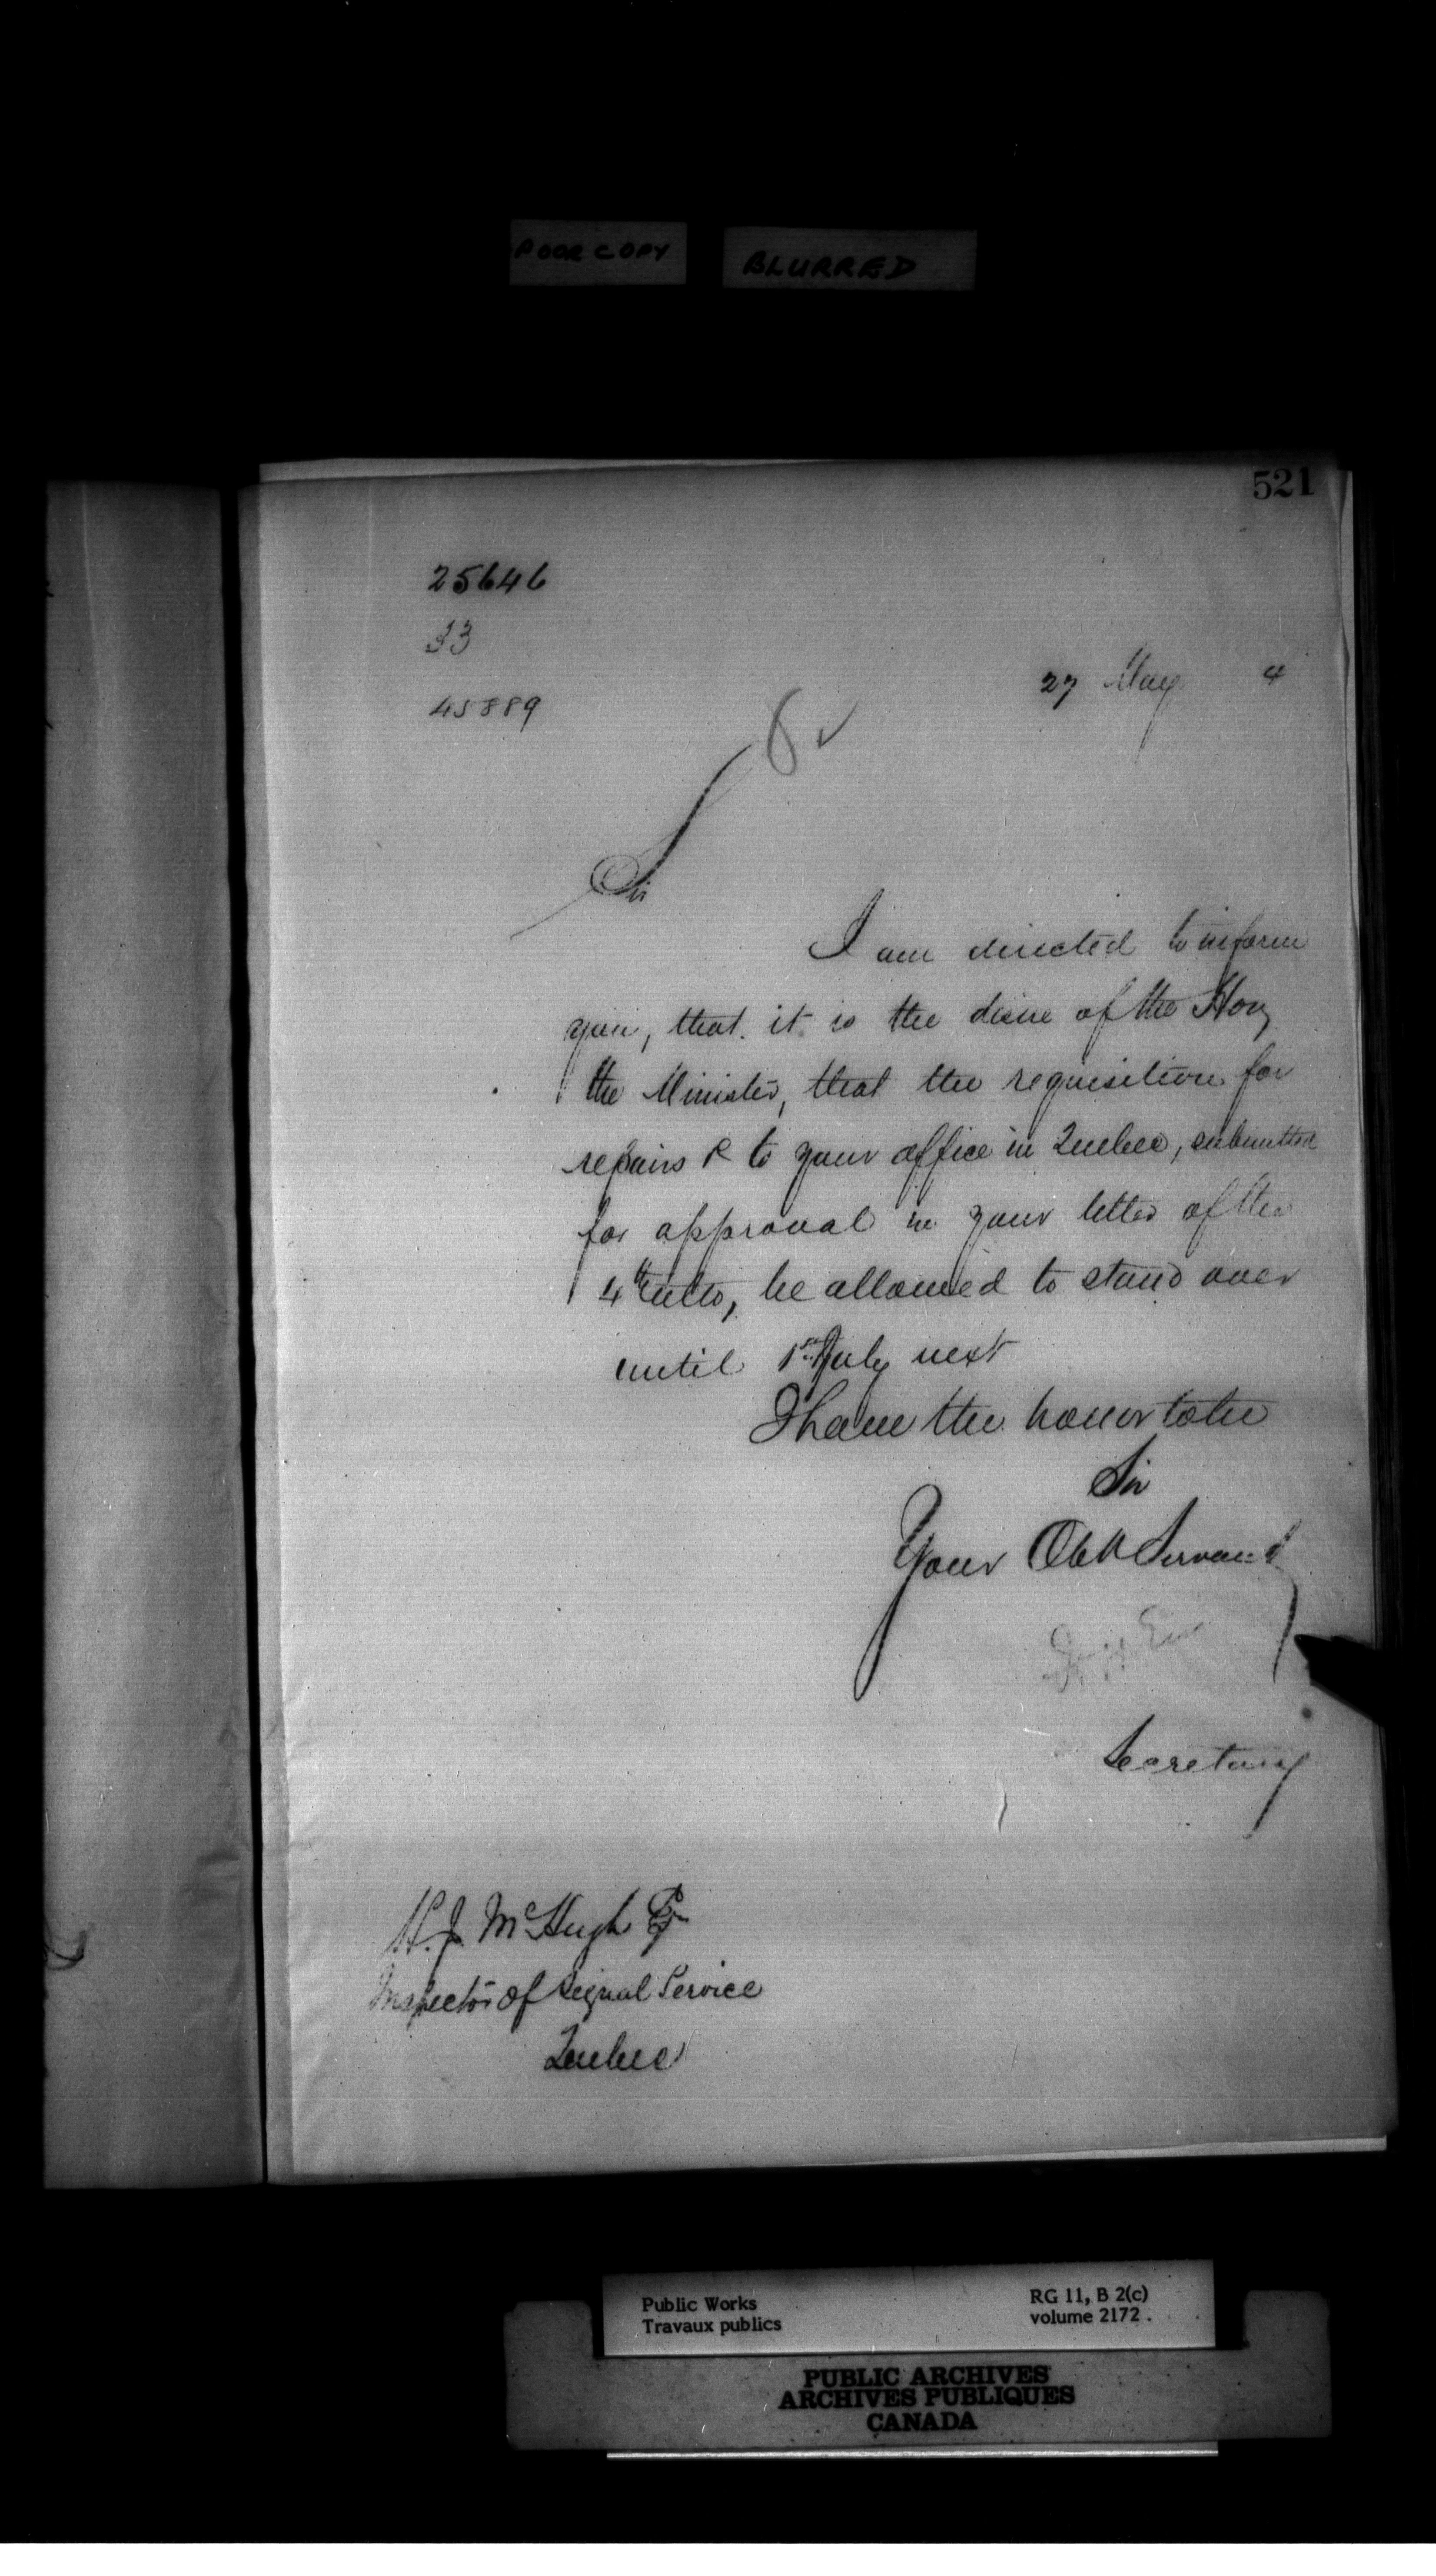 POOR COPY BLURRED
521
25646
33
45889
27 May 4
Sir
I am directed to inform
you, that it is the desire of the Hon
the Minister, that the requisition for
repairs &c to your office in Quebec, submitted
for approval in your letter of the
4th ulto, be allowed to stand over
until 1st July next
I have the honor to be
Sir
Your Obt Servant
Secretary
H. J. McHugh Esq
Inspector of Signal Service
Quebec
Public Works
Travaux publics
RG 11, B 2(c)
volume 2172.
PUBLIC ARCHIVES
ARCHIVES PUBLIQUES
CANADA